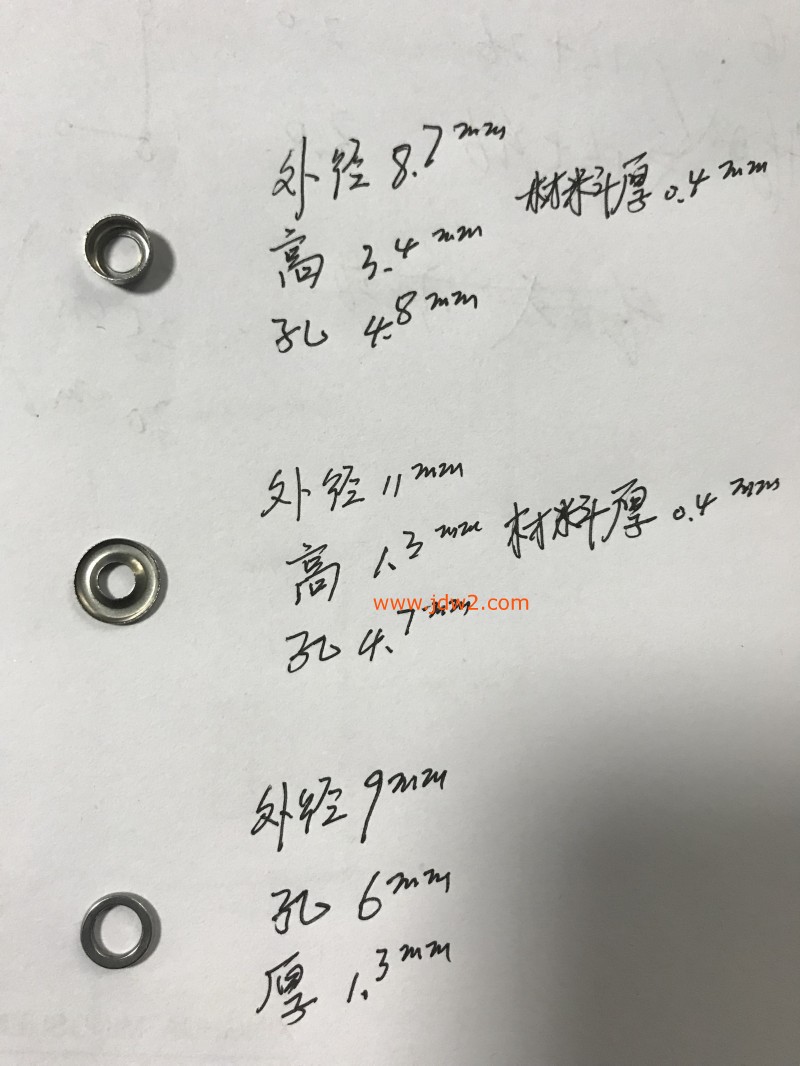 外径 8.7mm
材料厚 0.4mm
高 3.4mm
孔 4.8mm
外径 11mm
高 1.3mm 材料厚 0.4mm
www.jdw2.com
孔 4.7mm
外径 9mm
孔 6mm
厚 1.3mm